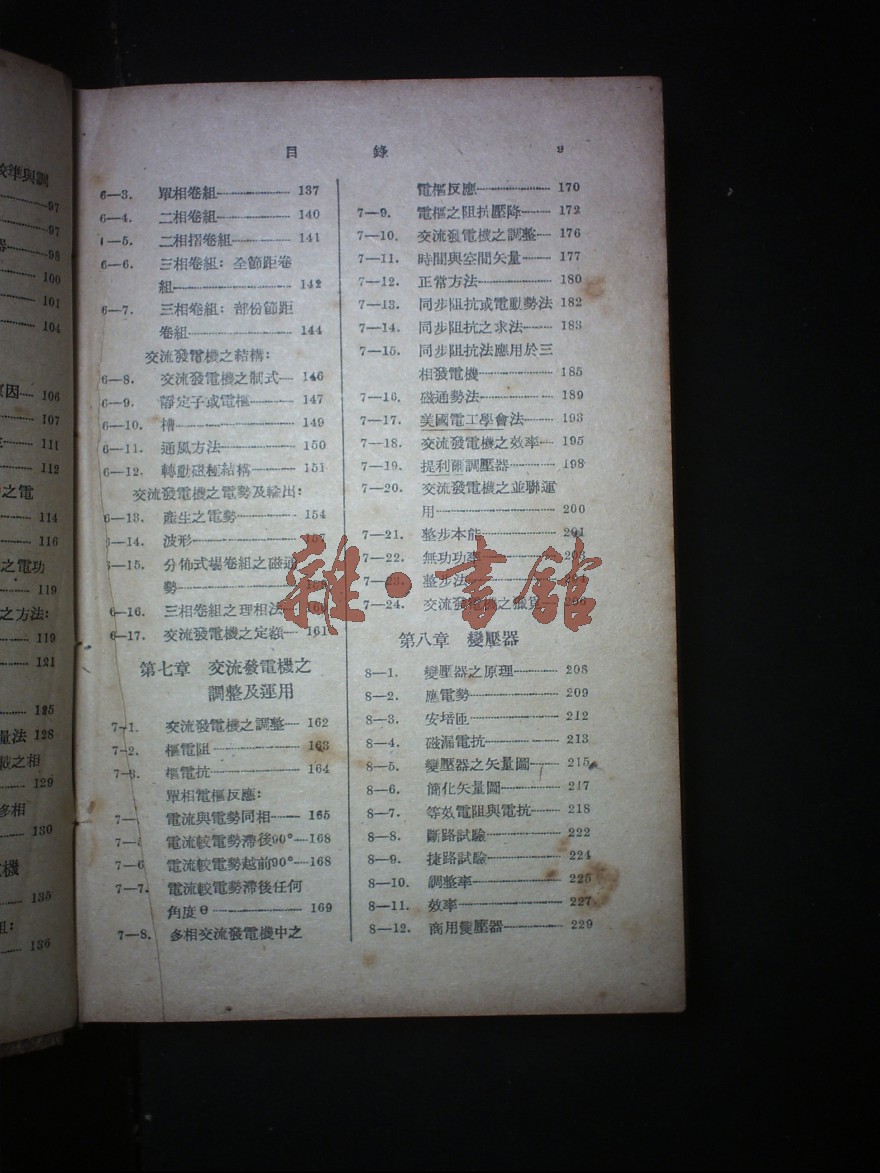 目 錄 9
6—3. 單相卷組 137
6—4. 二相卷組 140
6—5. 二相摺卷組 141
6—6. 三相卷組：全節距卷
組 142
6—7. 三相卷組：部份節距
卷組 144
交流發電機之結構：
6—8. 交流發電機之制式 146
6—9. 靜定子或電樞 147
6—10. 槽 149
6—11. 通風方法 150
6—12. 轉動磁極結構 151
交流發電機之電勢及輸出：
6—13. 產生之電勢 154
6—14. 波形 157
6—15. 分佈式場卷組之磁通
勢
6—16. 三相卷組之理相法 160
6—17. 交流發電機之定額 161
第七章 交流發電機之
調整及運用
7—1. 交流發電機之調整 162
7—2. 樞電阻 163
7—3. 樞電抗 164
單相電樞反應：
7— 電流與電勢同相 165
7— 電流較電勢滯後90° 168
7—6 電流較電勢越前90° 168
7—7. 電流較電勢滯後任何
角度θ 169
7—8. 多相交流發電機中之
電樞反應 170
7—9. 電樞之阻抗壓降 172
7—10. 交流發電機之調整 176
7—11. 時間與空間矢量 177
7—12. 正常方法 180
7—13. 同步阻抗或電動勢法 182
7—14. 同步阻抗之求法 183
7—15. 同步阻抗法應用於三
相發電機 185
7—16. 磁通勢法 189
7—17. 美國電工學會法 193
7—18. 交流發電機之效率 195
7—19. 提利爾調壓器 198
7—20. 交流發電機之並聯運
用 200
7—21. 整步本能 201
7—22. 無功功率 203
7—23. 整步法 204
7—24. 交流發電機之 206
第八章 變壓器
8—1. 變壓器之原理 208
8—2. 應電勢 209
8—3. 安培匝 212
8—4. 磁漏電抗 213
8—5. 變壓器之矢量圖 215
8—6. 簡化矢量圖 217
8—7. 等效電阻與電抗 218
8—8. 斷路試驗 222
8—9. 捷路試驗 224
8—10. 調整率 225
8—11. 效率 227
8—12. 商用變壓器 229
雜·書館
校準與調
97
97
器 98
100
101
104
原因 106
107
111
112
之電
114
116
之電功
119
之方法：
119
121
125
量法 128
載之相
129
多相
130
電機
135
組：
136